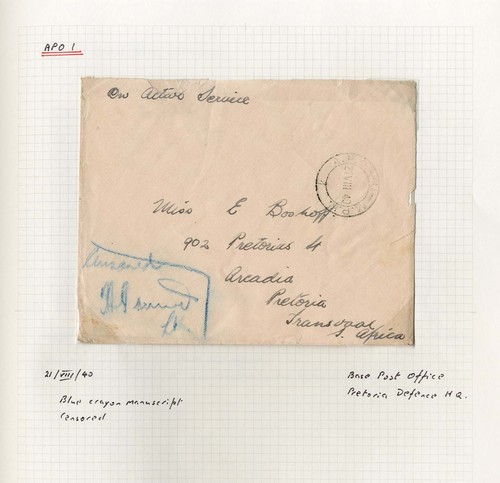 APO 1
On Active Service
Miss E Boshoff.
902 Pretorius St
Arcadia
Pretoria
Transvaal
S. Africa
Censored
21/VIII/40
Blue crayon manuscript
censored
Base Post Office
Pretoria Defence H.Q.